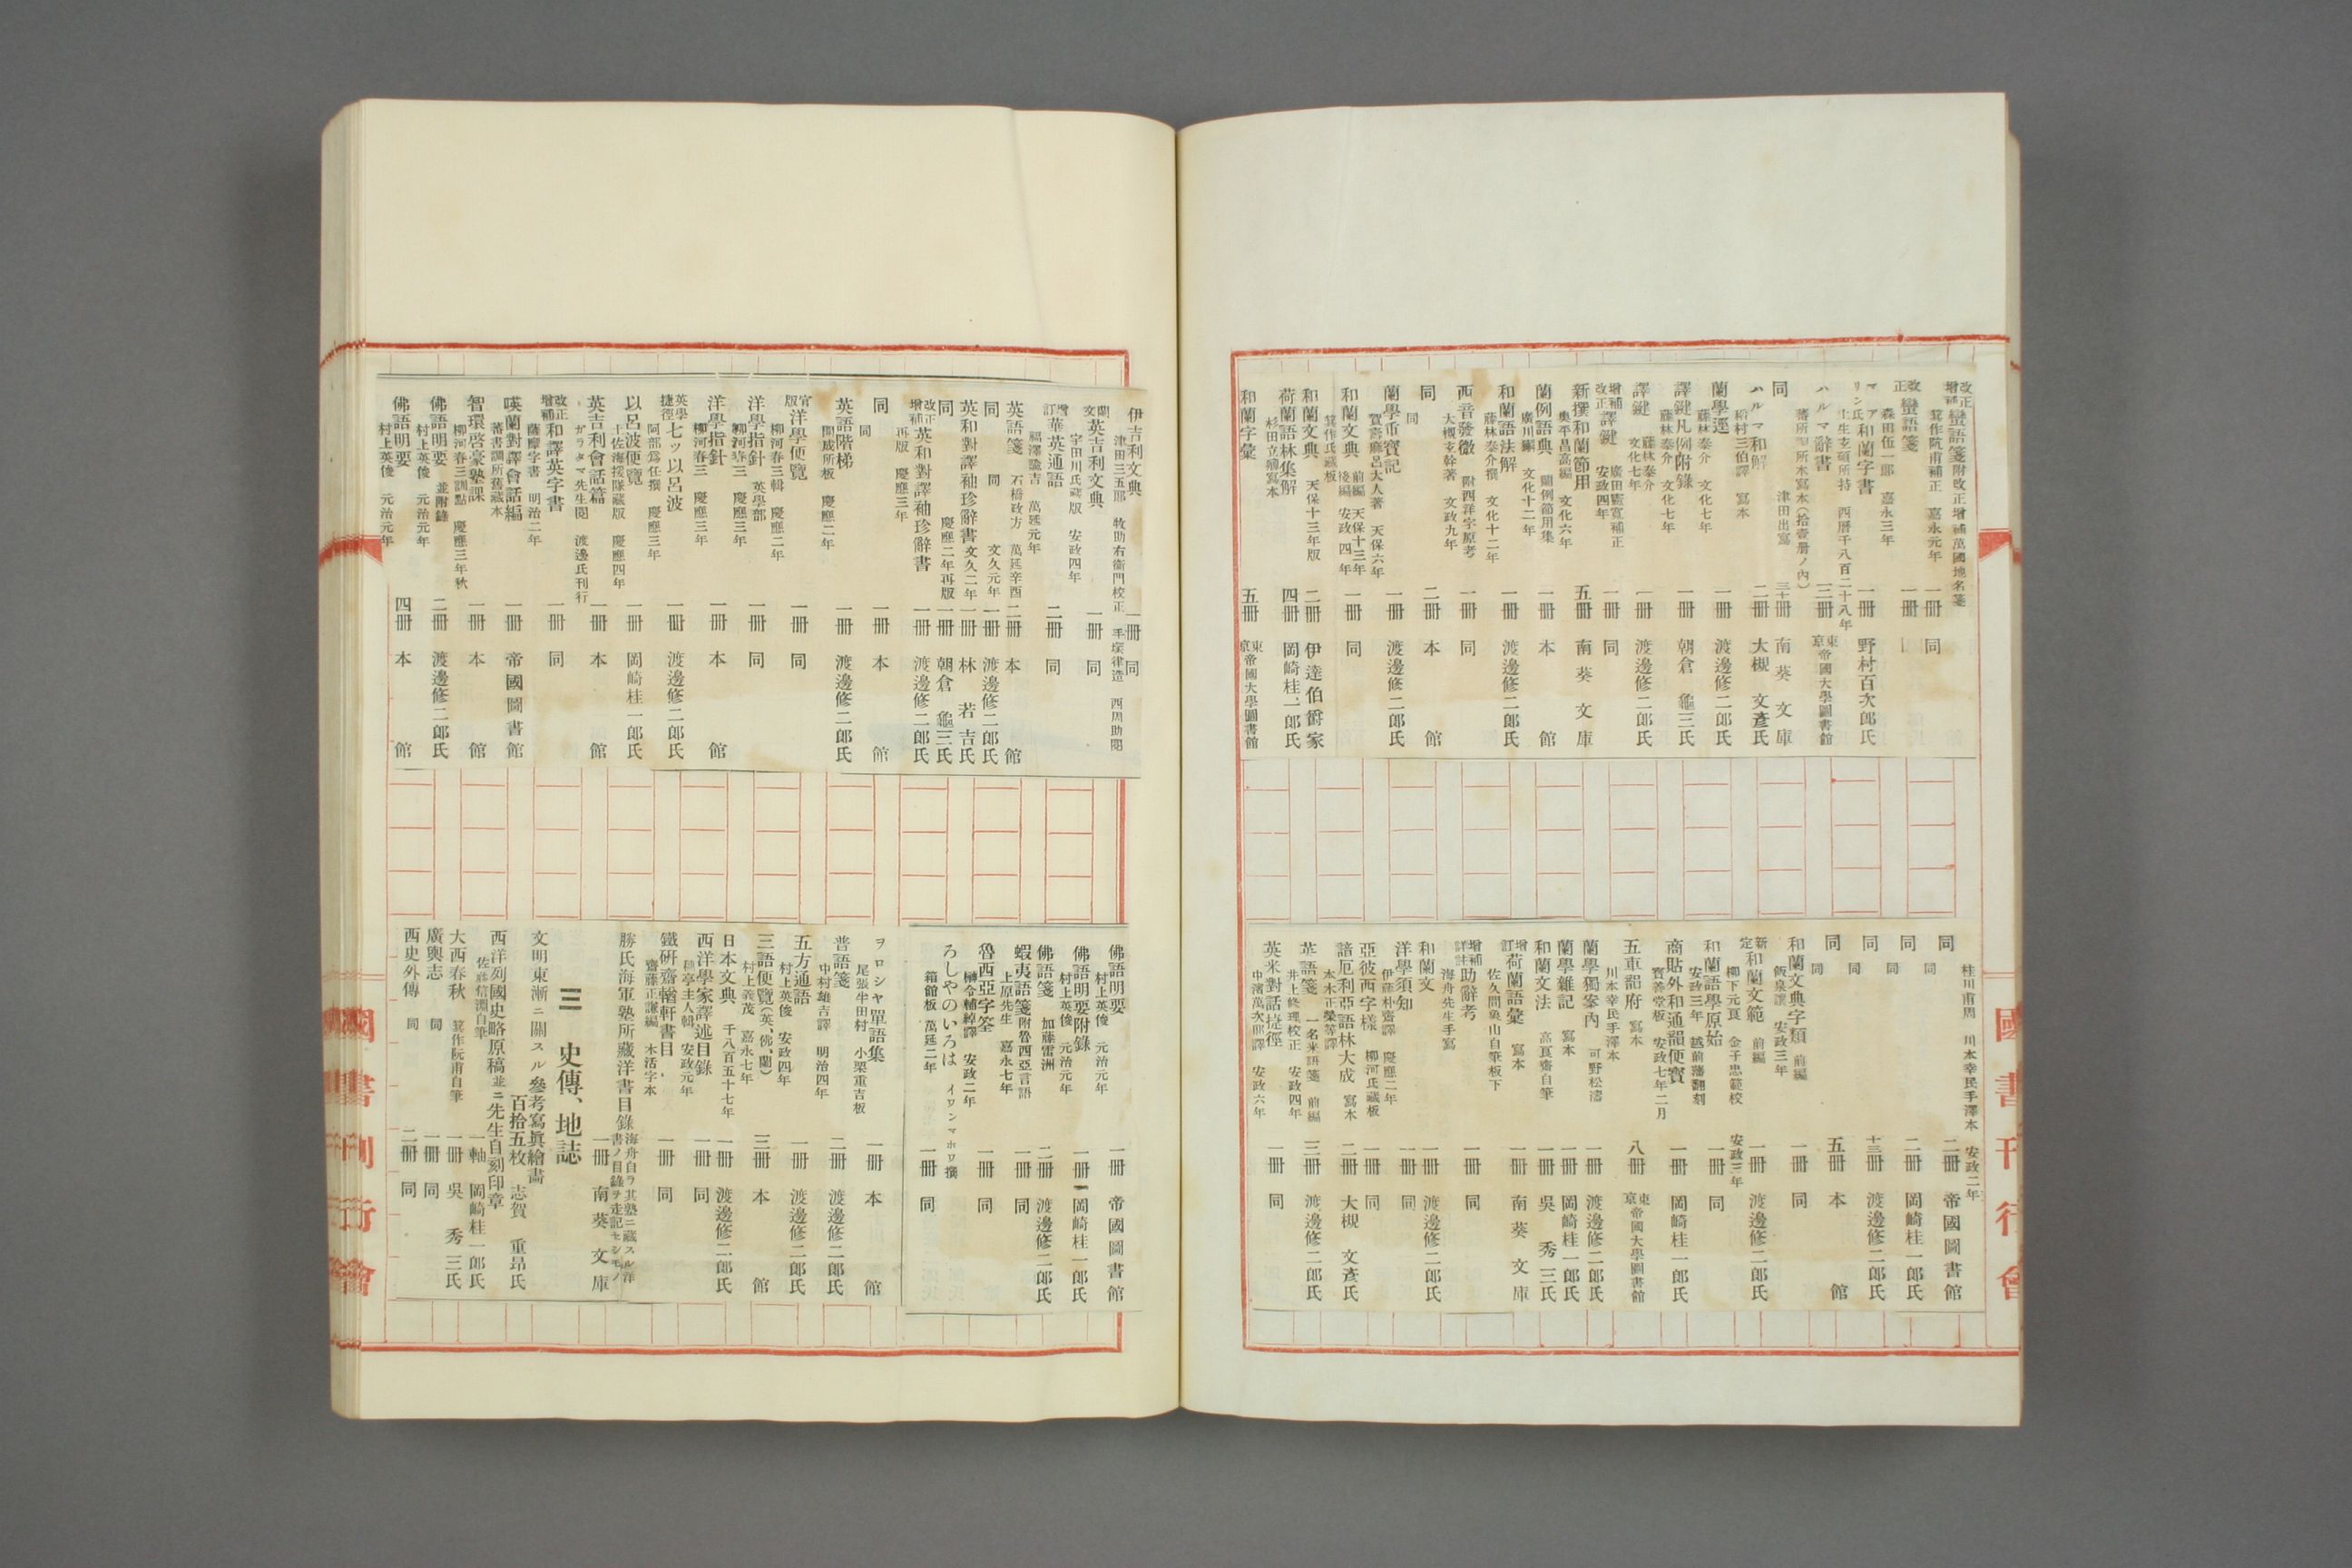 改正增補蠻語箋附改正增補萬國地名箋
箕作阮甫補正 嘉永元年 一冊 同
改正蠻語箋
森田伍一郎 嘉永三年 一冊
マリン氏ア和蘭字書 一冊 野村百次郎氏
土生玄碩所持 西曆千八百二十八年
ハルマ辭書 三冊 東京帝國大學圖書館
蕃所調所本寫本(拾壹册ノ內)
同 津田出寫 三十冊 南葵文庫
ハルマ和解 二冊 大槻文彥氏
稻村三伯譯 寫本
蘭學逕 一冊 渡邊修二郎氏
藤林泰介 文化七年
譯鍵凡例附錄 一冊 朝倉龜三氏
藤林泰介 文化七年
譯鍵 一冊 渡邊修二郎氏
藤林泰介 文化七年
增補改正譯鍵 一冊 同
廣田憲寬補正 安政四年
新撰和蘭節用 五冊 南葵文庫
奧平昌高編 文化六年
蘭例語典 蘭例節用集 一冊 本館
廣川獬 文化十二年
和蘭語法解 一冊 渡邊修二郎氏
藤林泰介撰 文化十二年
西音發微 附西洋字原考 一冊 同
大槻玄幹著 文政九年
同 二冊 本館
同
蘭學重寶記 一冊 渡邊修二郎氏
賀壽麻呂大人著 天保六年
和蘭文典 前編 天保十三年 後編 安政四年 一冊 同
箕作氏藏板
和蘭文典 天保十三年版 二冊 伊達伯爵家
荷蘭語林集解 四冊 岡崎桂一郎氏
杉田立繪寫本
和蘭字彙 五冊 東京帝國大學圖書館
桂川甫周 川本幸民手澤本 安政二年
同 二冊 帝國圖書館
同
同 二冊 岡崎桂一郎氏
同
同 十三冊 渡邊修二郎氏
同
同 五冊 本館
同
和蘭文典字類 前編 一冊 同
飯泉讓 安政三年
新定和蘭文範 前編 一冊 渡邊修二郎氏
柳下元頁 金子忠範校 安政三年
和蘭語學原始 一冊 同
安政三年 越前藩翻刻
商貼外和通韻便寶 一冊 岡崎桂一郎氏
寶善堂板 安政七年二月
五車韶府 寫本 八冊 東京帝國大學圖書館
川本幸民手澤本
蘭學獨案內 可野松濤 一冊 渡邊修二郎氏
蘭學雜記 寫本 一冊 岡崎桂一郎氏
和蘭文法 高良齋自筆 一冊 吳秀三氏
增訂荷蘭語彙 寫本 一冊 南葵文庫
佐久間象山自筆板下
增補詳註助辭考 一冊 同
海舟先生手寫
和蘭文 一冊 渡邊修二郎氏
洋學須知 一冊 同
伊藤朴齋譯 慶應二年
亞彼西字樣 柳河氏藏板 一冊 同
諳厄利亞語林大成 寫本 二冊 大槻文彥氏
本木正榮等譯
英語箋 一名米語箋 前編 三冊 渡邊修二郎氏
井上修理校正 安政四年
英米對話捷徑 一冊 同
中濱萬次郎譯 安政六年
國書刊行會
伊吉利文典 一冊 同
津田三五郎 牧助右衞門校正 手塚律造 西周助閱
蘭文英吉利文典 一冊 同
宇田川氏藏版 安政四年
增訂華英通語 二冊 同
福澤諭吉 萬延元年
英語箋 石橋政方 萬延辛酉 二冊 本館
同 同 文久元年 一冊 渡邊修二郎氏
英和對譯袖珍辭書 文久二年 一冊 林若吉氏
同 慶應二年再版 一冊 朝倉龜三氏
改正增補英和對譯袖珍辭書 一冊 渡邊修二郎氏
再版 慶應三年
同 一冊 本館
同
英語階梯 一冊 渡邊修二郎氏
開成所板 慶應二年
官版洋學便覽 一冊 同
柳河春三輯 慶應二年
洋學指針 英學部 一冊 同
柳河春三 慶應三年
洋學指針 一冊 本館
柳河春三 慶應三年
英學捷徑七ッ以呂波 一冊 渡邊修二郎氏
阿部爲任撰 慶應三年
以呂波便覽 一冊 岡崎桂一郎氏
土佐海援隊藏版 慶應四年
英吉利會話篇 一冊 本館
ガラタマ先生閱 渡邊氏刊行
改正增補和譯英字書 一冊 同
薩摩字書 明治二年
暎蘭對譯會話編 一冊 帝國圖書館
蕃書調所舊藏本
智環啓蒙塾課 一冊 本館
柳河春三訓點 慶應三年秋
佛語明要 並附錄 二冊 渡邊修二郎氏
村上英俊 元治元年
佛語明要 四冊 本館
村上英俊 元治元年
佛語明要 一冊 帝國圖書館
村上英俊 元治元年
佛語明要附錄 一冊 岡崎桂一郎氏
村上英俊 元治元年
佛語箋 加藤雷洲 二冊 渡邊修二郎氏
蝦夷語箋附魯西亞言語 一冊 同
上原先生 嘉永七年
魯西亞字筌 一冊 同
榊令輔綽譯 安政二年
ろしやのいろは イワンマホワ撰 一冊 同
箱館板 萬延二年
ヲロシヤ單語集 一冊 本館
尾張牛田村 小栗重吉板
普語箋 二冊 渡邊修二郎氏
中村雄吉譯 明治四年
五方通語 一冊 渡邊修二郎氏
村上英俊 安政四年
三語便覽(英、佛、蘭) 三冊 本館
村上義茂 嘉永七年
日本文典 千八百五十七年 一冊 渡邊修二郎氏
西洋學家譯述目錄 一冊 同
穗亭主人輯 安政元年
鐵硏齋輶軒書目 一冊 同
齋藤正謙編 木活字本
勝氏海軍塾所藏洋書目錄 海舟自ラ其塾ニ藏スル洋書ノ目錄ヲ走記セシモノ 一冊 南葵文庫
三 史傳、地誌
文明東漸ニ關スル參考寫眞繪畵
百拾五枚 志賀重昂氏
西洋列國史略原稿並ニ先生自刻印章
佐藤信淵自筆 一軸 岡崎桂一郎氏
大西春秋 箕作阮甫自筆 一冊 吳秀三氏
廣輿志 同 一冊 同
西史外傳 同 二冊 同
國書刊行會